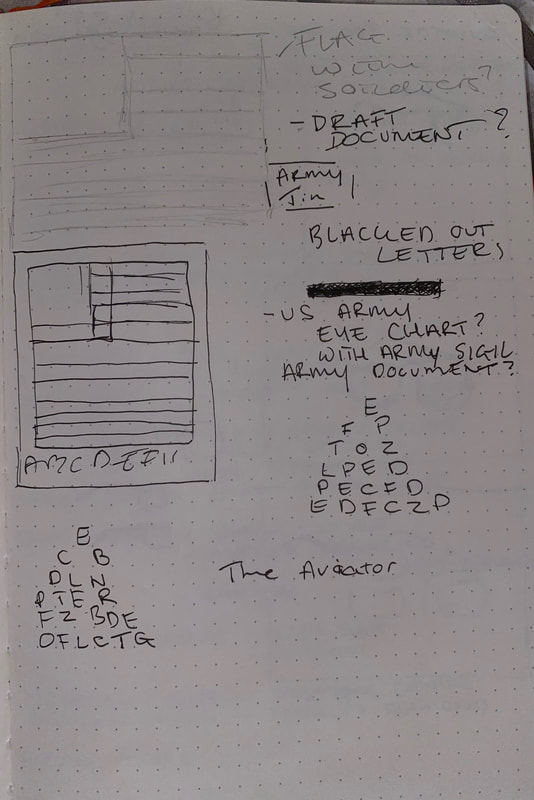 FLAG
WITH
- DRAFT
DOCUMENT ?
ARMY
BLACKED OUT
LETTERS
- US ARMY
EYE CHART?
WITH ARMY SIGIL
ARMY DOCUMENT?
E
F P
T O Z
L P E D
P E C F D
E D F C Z P
E
C B
D L N
P T E R
F Z B D E
O F L C T G
The Aviator